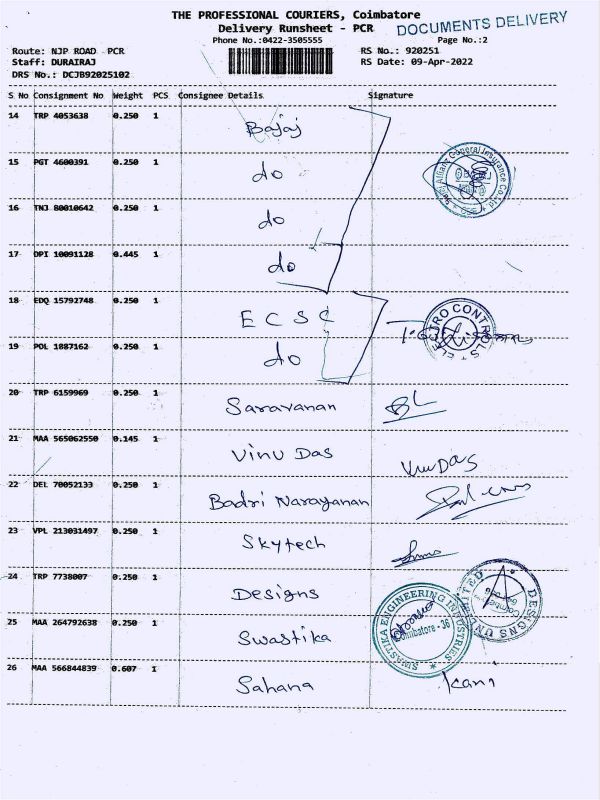 THE PROFESSIONAL COURIERS, Coimbatore
DOCUMENTS DELIVERY
Delivery Runsheet - PCR
Phone No.:0422-3505555
Page No.:2
Route: NJP ROAD -PCR
RS No.: 920251
Staff: DURAIRAJ
RS Date: 09-Apr-2022
DRS No.: DCJB92025102
S No Consignment No Weight PCS Consignee Details Signature
14 TRP 4053638 0.250 1 Bajaj
15 PGT 4600391 0.250 1 do
Allianz General Insurance Co.Ltd
16 TNJ 80010642 0.250 1 do
17 DPI 10091128 0.445 1 do
18 EDQ 15792748 0.250 1 ECSC
ELECTRO CONTROLS
19 POL 1887162 0.250 1 do
20 TRP 6159969 0.250 1 Saravanan
21 MAA 565062550 0.145 1 Vinu Das VinuDas
22 DEL 70052133 0.250 1 Badri Narayanan
23 VPL 213031497 0.250 1 Skytech
24 TRP 7738007 0.250 1 Designs
DESIGNS UNLIMITED
25 MAA 264792638 0.250 1 Swastika
SWASTIKA ENGINEERING INDUSTRIES
Coimbatore - 36
26 MAA 566844839 0.607 1 Sahana Kani